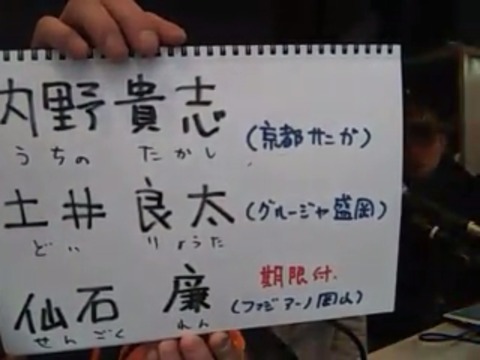 内野貴志 (京都サンガ)
うちの たかし
土井 良太 (グルージャ盛岡)
どい りょうた
仙石 廉 期限付.
せんごく れん (ファジアーノ岡山)